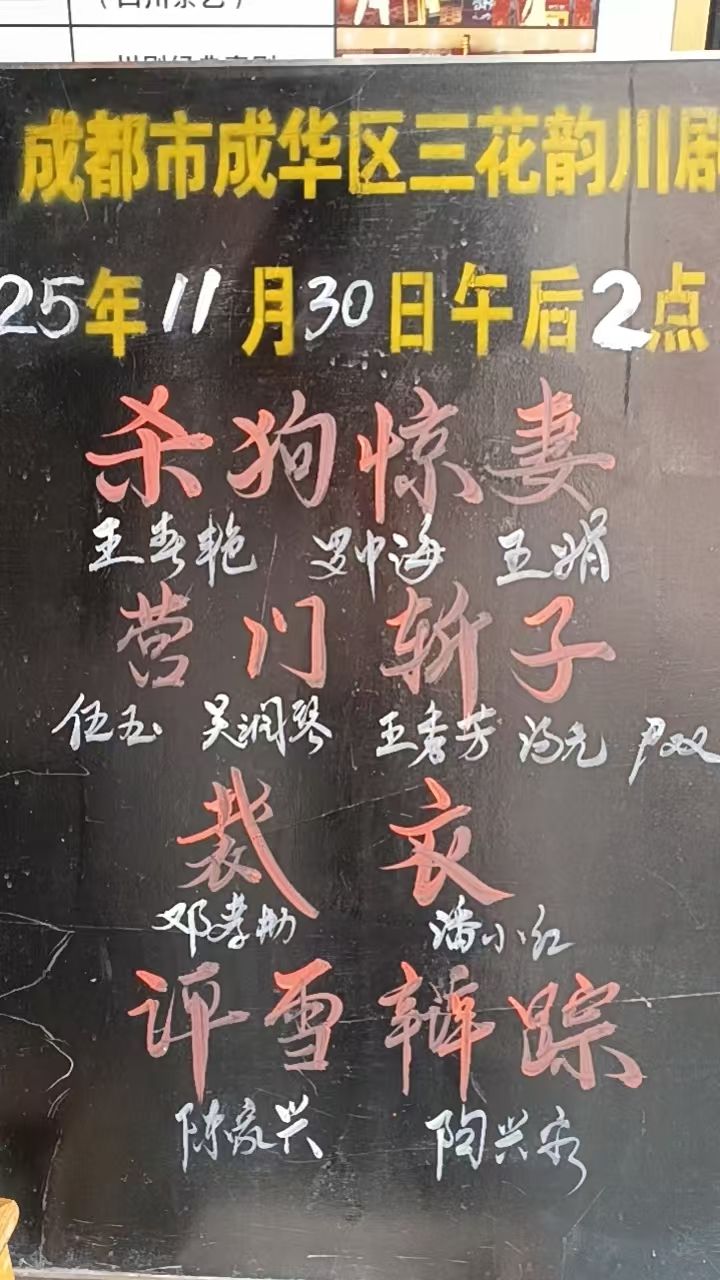 （四川茶艺）
成都市成华区三花韵川剧
25年11月30日午后2点
杀狗惊妻
王春艳 罗中海 王娟
营门斩子
伍玉 吴润琴 王香芳 汤克 尹双
裁衣
邓孝勋 潘小红
评雪辨踪
陈家兴 陶兴永